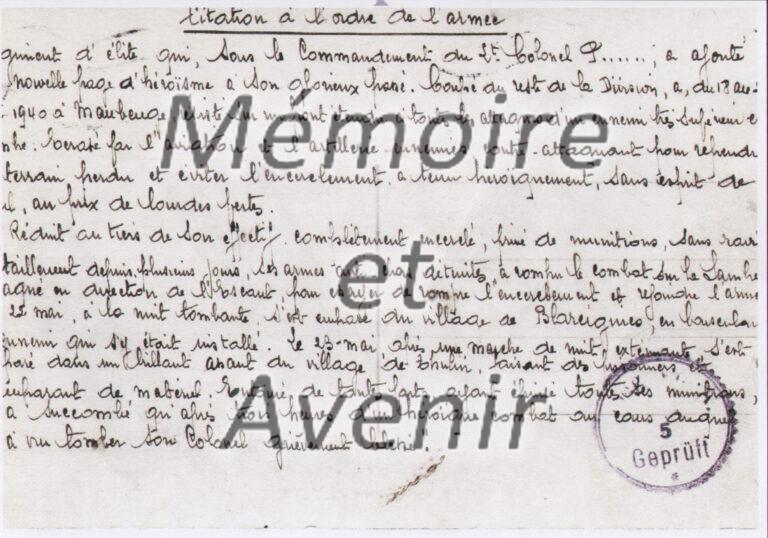 Citation à l'ordre de l'armée
giment d'élite qui, sous le Commandement du Lt Colonel P......, a ajouté
nouvelle page d'héroïsme à son glorieux passé. Comme du reste de la Division, a, du 18 au
1940 à Maubeuge, résisté sur un front étendu à toutes les attaques d'un ennemi très supérieur e
bre. Ecrasé par l'aviation et l'artillerie ennemies contre-attaquant pour reprendre
terrain perdu et éviter l'encerclement, a tenu héroïquement, sans esprit de
l, au prix de lourdes pertes.
Réduit au tiers de son effectif, complètement encerclé, privé de munitions, sans ravi
taillement depuis plusieurs jours, ses armes anti-chars détruites, a rompu le combat sur la Sambre
agné en direction de l'Escaut, pour essayer de rompre l'encerclement et rejoindre l'armé
22 mai, à la nuit tombante s'est emparé du village de Blaregnies, en bousculan
ennemi qui s'y était installé. Le 23 mai après une marche de nuit, exténuante s'est
paré dans un brillant assaut du village de Thulin, faisant des prisonniers et
emparant de matériel. Engagé de toutes parts ayant épuisé toutes ses munitions,
a succombé qu'après trois heures d'un héroïque combat au cours duquel
a vu tomber son Colonel grièvement blessé.
Mémoire
et
Avenir
5
Geprüft